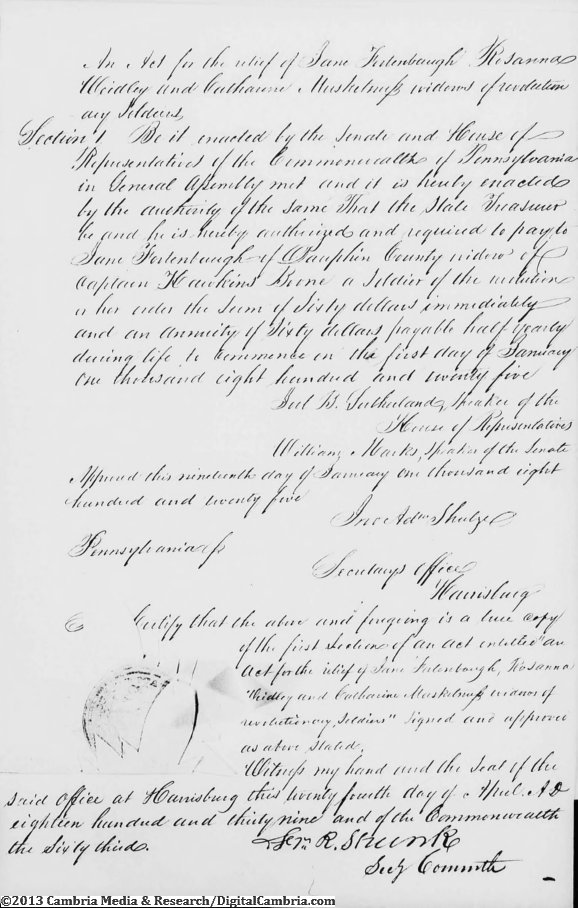 An Act for the relief of Jane Fortenbaugh Rosanna
Weidley and Catharine Muskelnuß widows of revolution
ary soldiers
Section 1 Be it enacted by the Senate and House of
Representatives of the Commonwealth of Pennsylvania
in General Assembly met and it is hereby enacted
by the authority of the same That the State Treasurer
be and he is hereby authorized and required to pay to
Jane Fortenbaugh of Dauphin County widow of
Captain Hawkins Boone a soldier of the revolution
or her order the sum of Sixty dollars immediately
and an annuity of Sixty dollars payable half yearly
during life to commence on the first day of January
one thousand eight hundred and twenty five
Joel B. Sutherland, Speaker of the
House of Representatives
William Marks, Speaker of the Senate
Approved this nineteenth day of January one thousand eight
hundred and twenty five
Jno Adm Shulze
Pennsylvania ss
Secretarys office
Harrisburg
I Certify that the above and forgoing is a true copy
of the first section of an act entitled "an
Act for the relief of Jane Fortenbaugh, Rosanna
Weidley and Catharine Muskelnuß widows of
revolutionary, soldiers" signed and approved
as above stated.
Witness my hand and the seal of the
said office at Harrisburg this twenty fourth day of April. A D
eighteen hundred and thirty nine and of the Commonwealth
the sixty third.
R. Shunk
Secy Commth
©2013 Cambria Media & Research/DigitalCambria.com